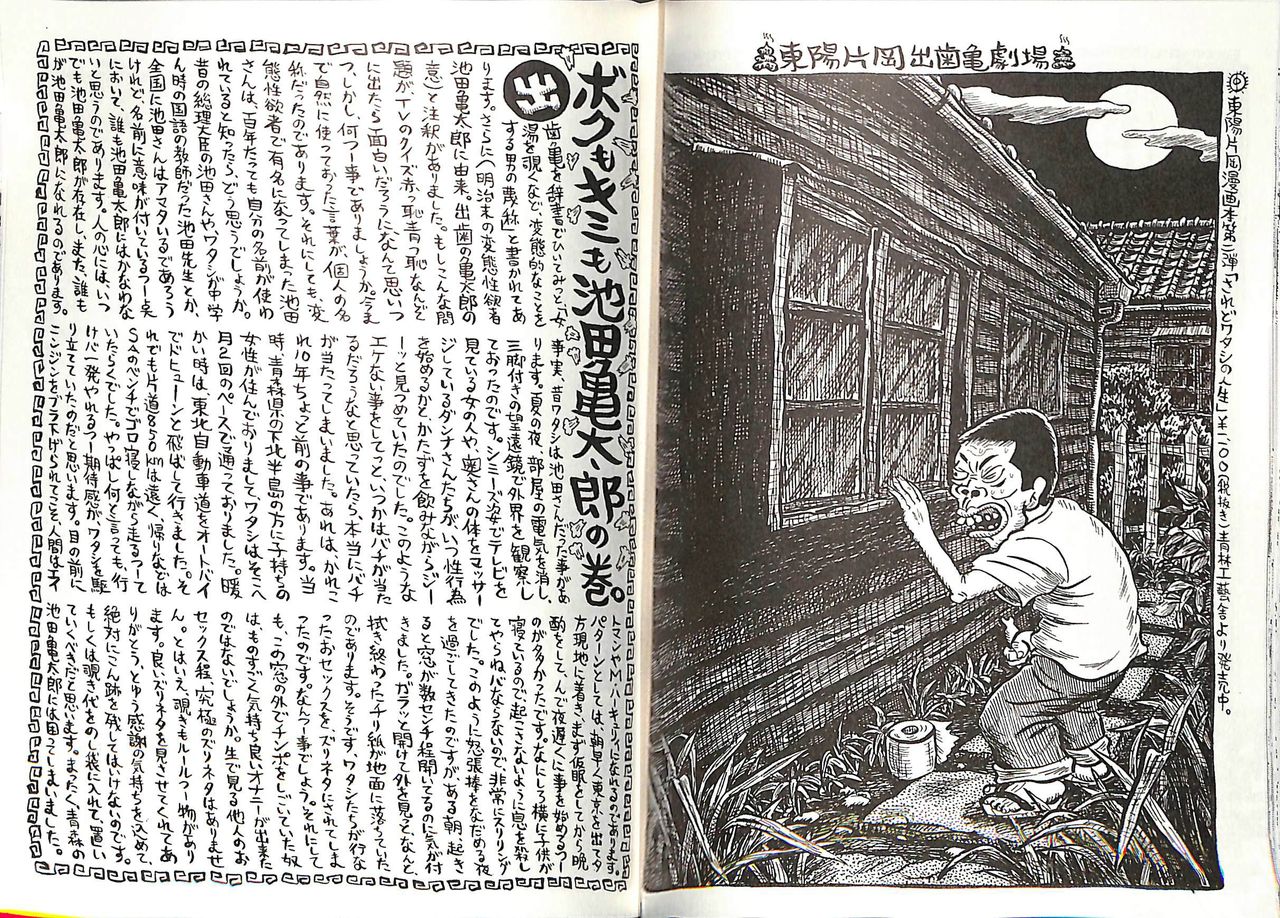 東陽片岡出歯亀劇場
東陽片岡漫画本第二弾「されどワタシの人生」¥一二〇〇(税抜き)青林工藝舎より発売中。
ボクもキミも池田亀太郎の巻。
出歯亀を辞書でひいてみと、「女
湯を覗くなど、変態的なことを
する男の蔑称」と書かれてあ
ります。さらに〈明治末の変態性欲者
池田亀太郎に由来。出歯の亀太郎の
意〉と注釈がありました。もしこんな問
題がTVのクイズ赤っ恥青っ恥なんぞ
に出たら面白いだろうに、なんて思いつ
つ、しかし、何つー事でありましょうか。今ま
で自然に使ってあった言葉が、個人の名
称だったのであります。それにしても、変
態性欲者で有名になってしまった池田
さんは、百年たっても自分の名前が使わ
れていると知ったら、どう思うでしょうか。
昔の総理大臣の池田さんや、ワタシが中学
ん時の国語の教師だった池田先生とか、
全国に池田さんはアマタいるであろう
けれど、名前に意味が付いているつー点
において、誰も池田亀太郎にはかなわな
いと思うのであります。人の心には、いつ
でも池田亀太郎が存在し、また、誰も
が池田亀太郎になれるのであります。
事実、昔ワタシは池田さんだった事があ
ります。夏の夜、部屋の電気を消し、
三脚付きの望遠鏡で外界を観察し
ておったのです。シミーズ姿でテレビを
見ている女の人や、奥さんの体をマッサー
ジしているダンナさんたちが、いつ性行為
を始めるかと、かたずを飲みながらジー
ーッと見つめていたのでした。このような
エケない事をしてっと、いつかはバチが当た
るだろうなと思っていたら、本当にバチ
が当たってしまいました。あれは、かれこ
れ10年ちょっと前の事であります。当
時、青森県の下北半島の方に子持ちの
女性が住んでおりまして、ワタシはそこへ
月2回のペースで通っておりました。暖
かい時は、東北自動車道をオートバイ
でドヒューンと飛ばして行きました。そ
れでも片道850kmは遠く、帰りなどは
SAのベンチでゴロ寝しながら走るつーて
いたらくでした。やっぱし何と言っても、行
けバ一発やれるつー期待感が、ワタシを駆
り立てていたのだと思います。目の前に
ニンジンをブラ下げられてこそ、人間はエイ
トマンやM・ハーキュリィになれるのであります。
パターンとしては、朝早く東京を出て夕
方現地に着き、まず仮眠をしてから晩
酌をして、んで夜遅くに事を始めるつー
のが多かったです。なにしろ横に子供が
寝ているので、起こさないように息を殺し
てやらねバならないので、非常にスリリング
でした。このように怒張棒をなだめる夜
を過ごしてきたのですが、ある朝、起き
ると窓が数センチ程開いてるのに気が付
きました。ガラッと開けて外を見ると、なんと、
拭き終わったチリ紙が地面に落ちていた
のであります。そうです、ワタシたちが行な
ったおセックスを、ズリネタにされてしま
ったのです。なんつー事でしょう。それにして
も、この窓の外でチンポをしごいていた奴
は、ものすごく気持ち良いオナニーが出来た
のではないでしょうか。生で見る他人のお
セックス程、究極のズリネタはありませ
ん。とはいえ、覗きもルールつー物があり
ます。良いズリネタを見させてくれてあ
りがとう、とゆう感謝の気持ちを込めて、
絶対にこん跡を残してはいけないのです。
もしくは覗き代をのし袋に入れて、置い
ていくべきだと思います。まったく、青森の
池田亀太郎には困ってしまいました。